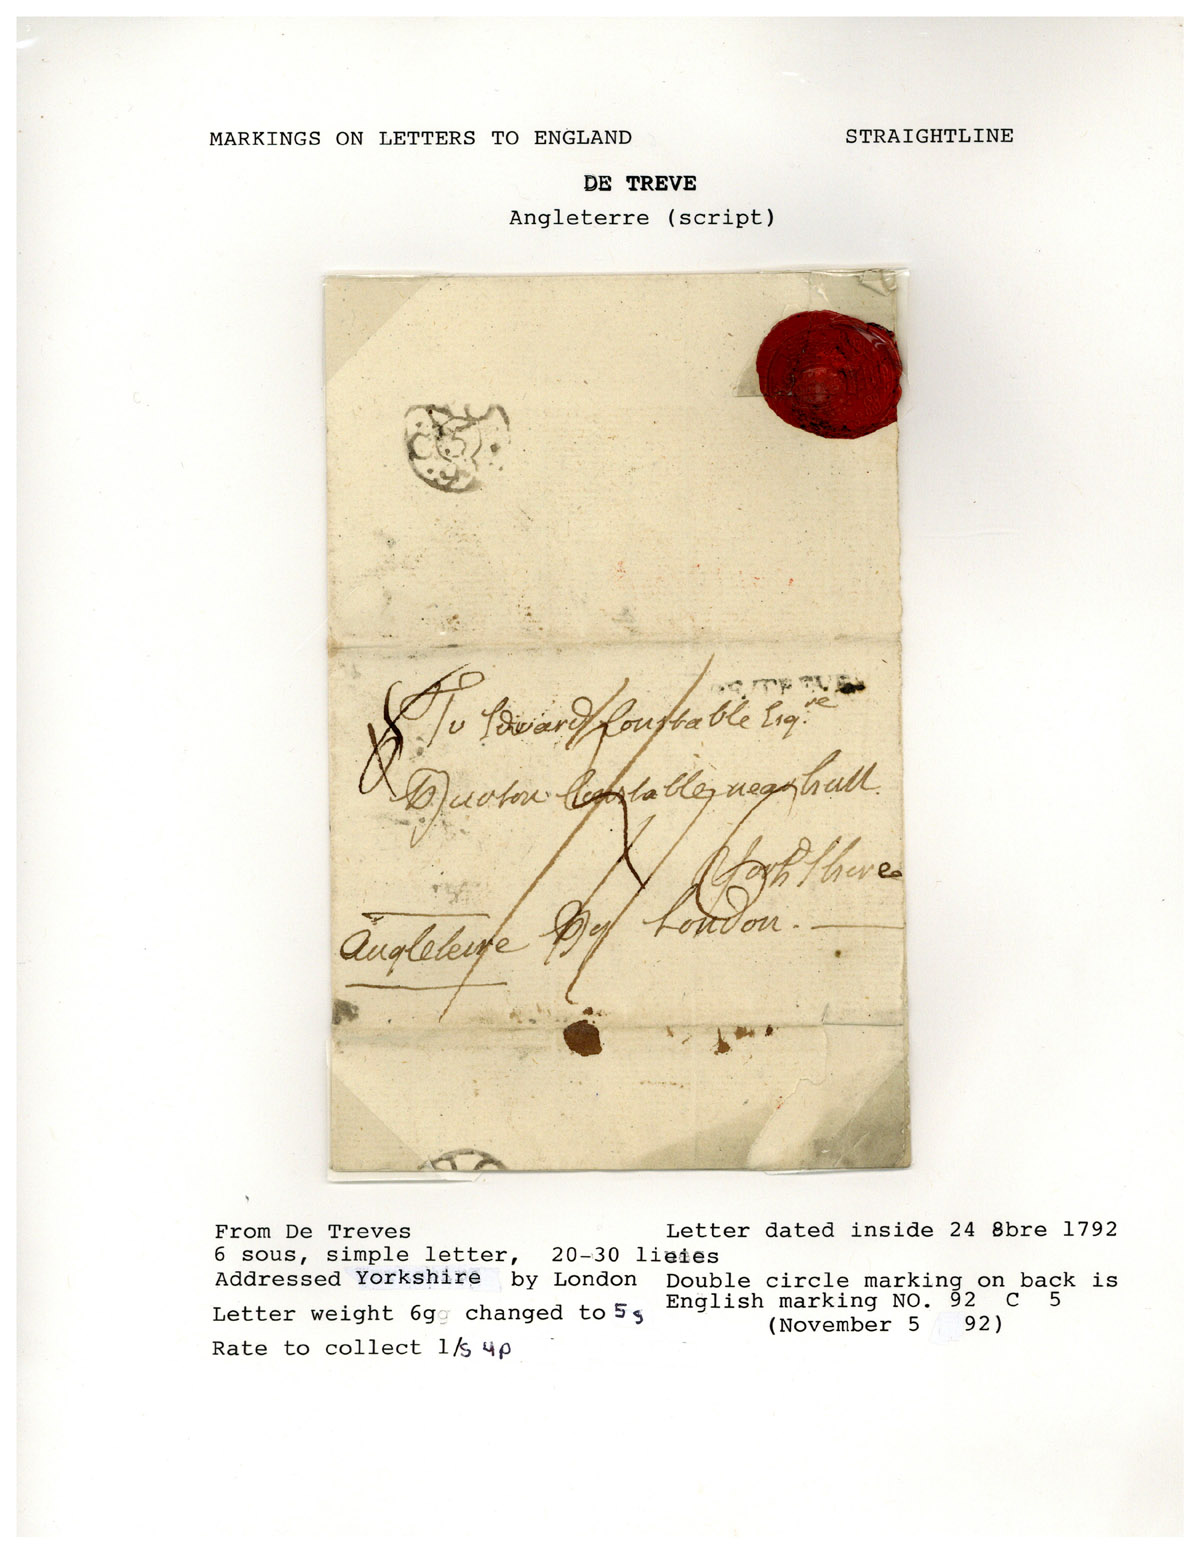 MARKINGS ON LETTERS TO ENGLAND STRAIGHTLINE
DE TREVE
Angleterre (script)
To Edward Constable Esq.re
Burton Constable near hull
York Shire
Angleterre By London.
From De Treves
6 sous, simple letter, 20-30 lieues
Addressed Yorkshire by London
Letter weight 6g changed to 5g
Rate to collect 1/s 4p
Letter dated inside 24 8bre 1792
Double circle marking on back is
English marking NO. 92 C 5
(November 5 92)